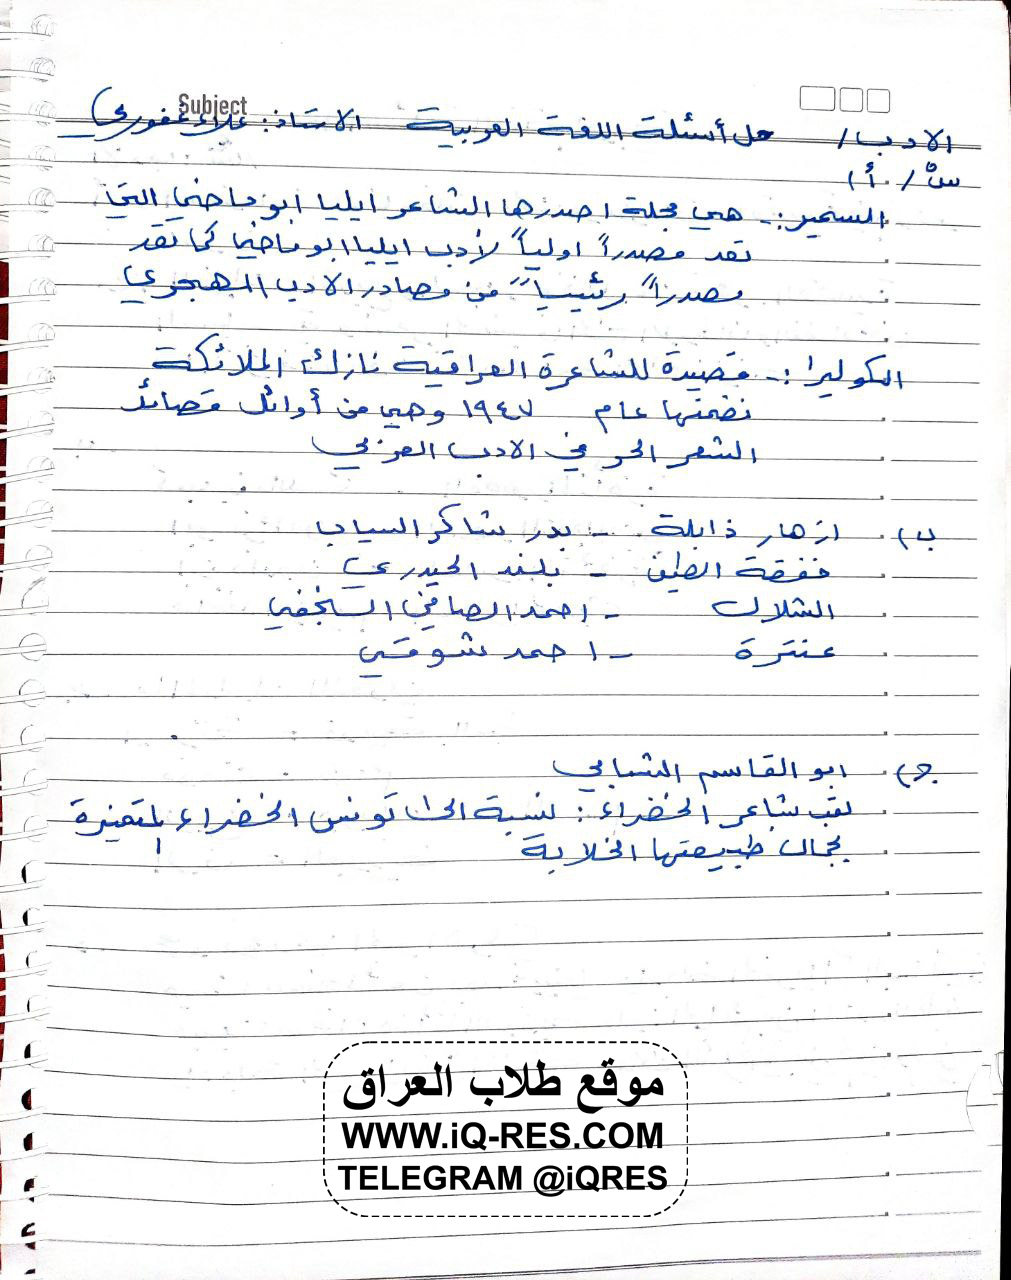 Subject
الادب / حل أسئلة اللغة العربية الاستاذ: علاء غفوري)
س٥ / أ)
السمير :- هي مجلة اصدرها الشاعر ايليا ابو ماضي التي
تعد مصدراً اولياً لأدب ايليا ابو ماضي كما تعد
مصدراً رئيسياً من مصادر الادب المهجري
الكوليرا :- قصيدة للشاعرة العراقية نازك الملائكة
نظمتها عام ١٩٤٧ وهي من أوائل قصائد
الشعر الحر في الادب العربي
ب) ازهار ذابلة - بدر شاكر السياب
خفقة الطين - بلند الحيدري
الشلال - احمد الصافي النجفي
عنترة - احمد شوقي
جـ) ابو القاسم الشابي
لقب شاعر الخضراء : نسبة الى تونس الخضراء المتميزة
بجمال طبيعتها الخلابة
موقع طلاب العراق
WWW.iQ-RES.COM
TELEGRAM @iQRES